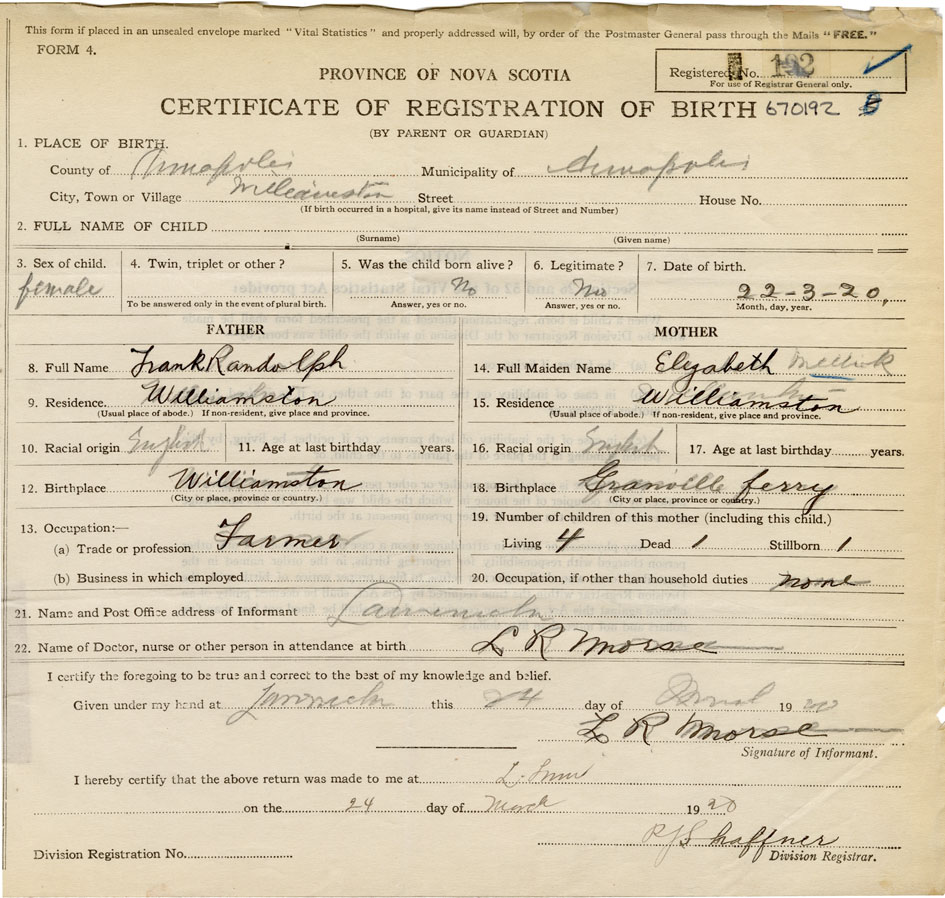 This form if placed in an unsealed envelope marked "Vital Statistics" and properly addressed will, by order of the Postmaster General pass through the Mails "FREE."
FORM 4.
Registered No. 192
For use of Registrar General only.
PROVINCE OF NOVA SCOTIA
CERTIFICATE OF REGISTRATION OF BIRTH 670192
(BY PARENT OR GUARDIAN)
1. PLACE OF BIRTH.
County of Annapolis Municipality of Annapolis
City, Town or Village Williamston Street House No.
(If birth occurred in a hospital, give its name instead of Street and Number)
2. FULL NAME OF CHILD
(Surname) (Given name)
3. Sex of child. 4. Twin, triplet or other? 5. Was the child born alive? 6. Legitimate? 7. Date of birth.
female No 22-3-20,
To be answered only in the event of plural birth. Answer, yes or no. Answer, yes or no. Month, day, year.
FATHER
8. Full Name Frank Randolph
9. Residence. Williamston
(Usual place of abode.) If non-resident, give place and province.
10. Racial origin English 11. Age at last birthday years.
12. Birthplace Williamston
(City or place, province or country.)
13. Occupation:—
(a) Trade or profession Farmer
(b) Business in which employed
MOTHER
14. Full Maiden Name Elizabeth
15. Residence Williamston
(Usual place of abode.) If non-resident, give place and province.
16. Racial origin English 17. Age at last birthday years.
18. Birthplace Granville ferry
(City or place, province or country.)
19. Number of children of this mother (including this child.)
Living 4 Dead 1 Stillborn 1
20. Occupation, if other than household duties none
21. Name and Post Office address of Informant
22. Name of Doctor, nurse or other person in attendance at birth L R Morse
I certify the foregoing to be true and correct to the best of my knowledge and belief.
Given under my hand at this 24 day of 19 20
L R Morse
Signature of Informant.
I hereby certify that the above return was made to me at
on the 24 day of March 1920
Shaffner
Division Registration No. Division Registrar.